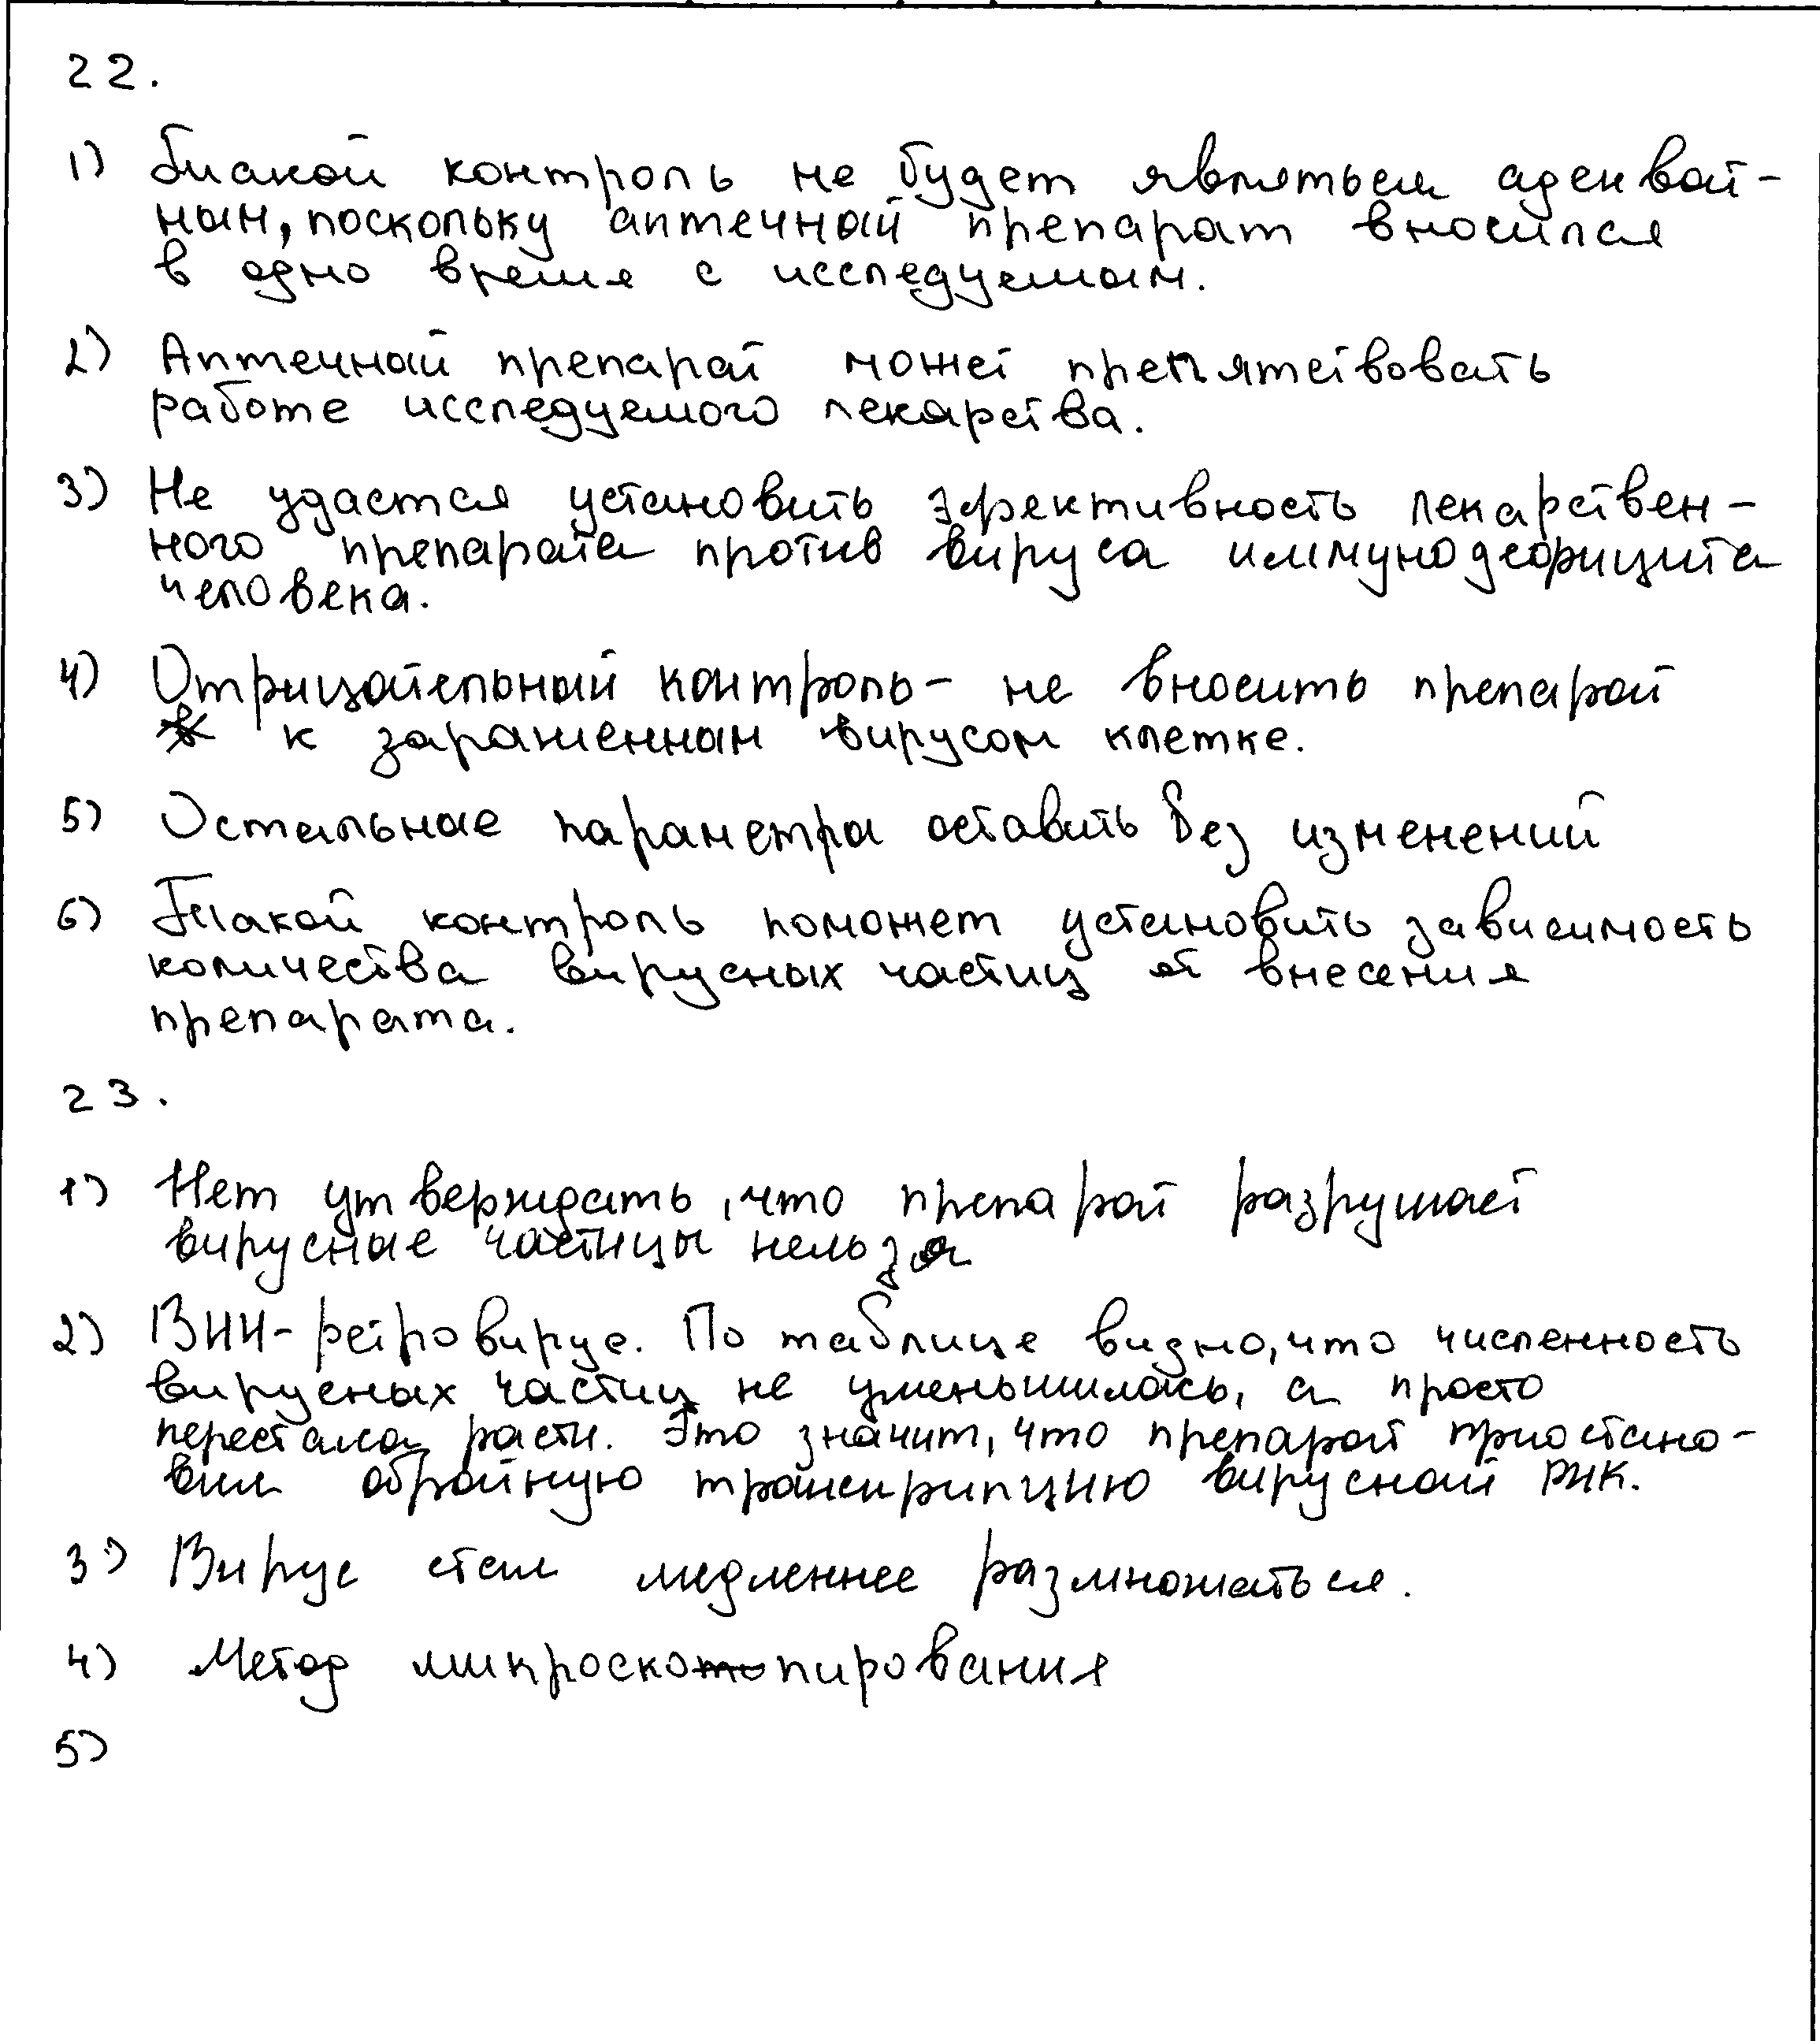 22.
1) Такой контроль не будет являться адекват-
ным, поскольку аптечный препарат вносился
в одно время с исследуемым.
2) Аптечный препарат может препятствовать
работе исследуемого лекарства.
3) Не удастся установить эфективность лекарствен-
ного препарата против вируса иммунодефицита
человека.
4) Отрицательный контроль - не вносить препарат
к зараженным вирусом клетке.
5) Остальные параметры оставить без изменений
6) Такой контроль поможет установить зависимость
количества вирусных частиц от внесения
препарата.
23.
1) Нет утверждать, что препарат разрушает
вирусные частицы нельзя
2) ВИЧ - ретровирус. По таблице видно, что численность
вирусных частиц не уменьшилась, а просто
перестала расти. Это значит, что препарат приостано-
вил обратную транскрипцию вирусной РНК.
3) Вирус стал медленнее размножаться.
4) Метод микроскопирования
5)